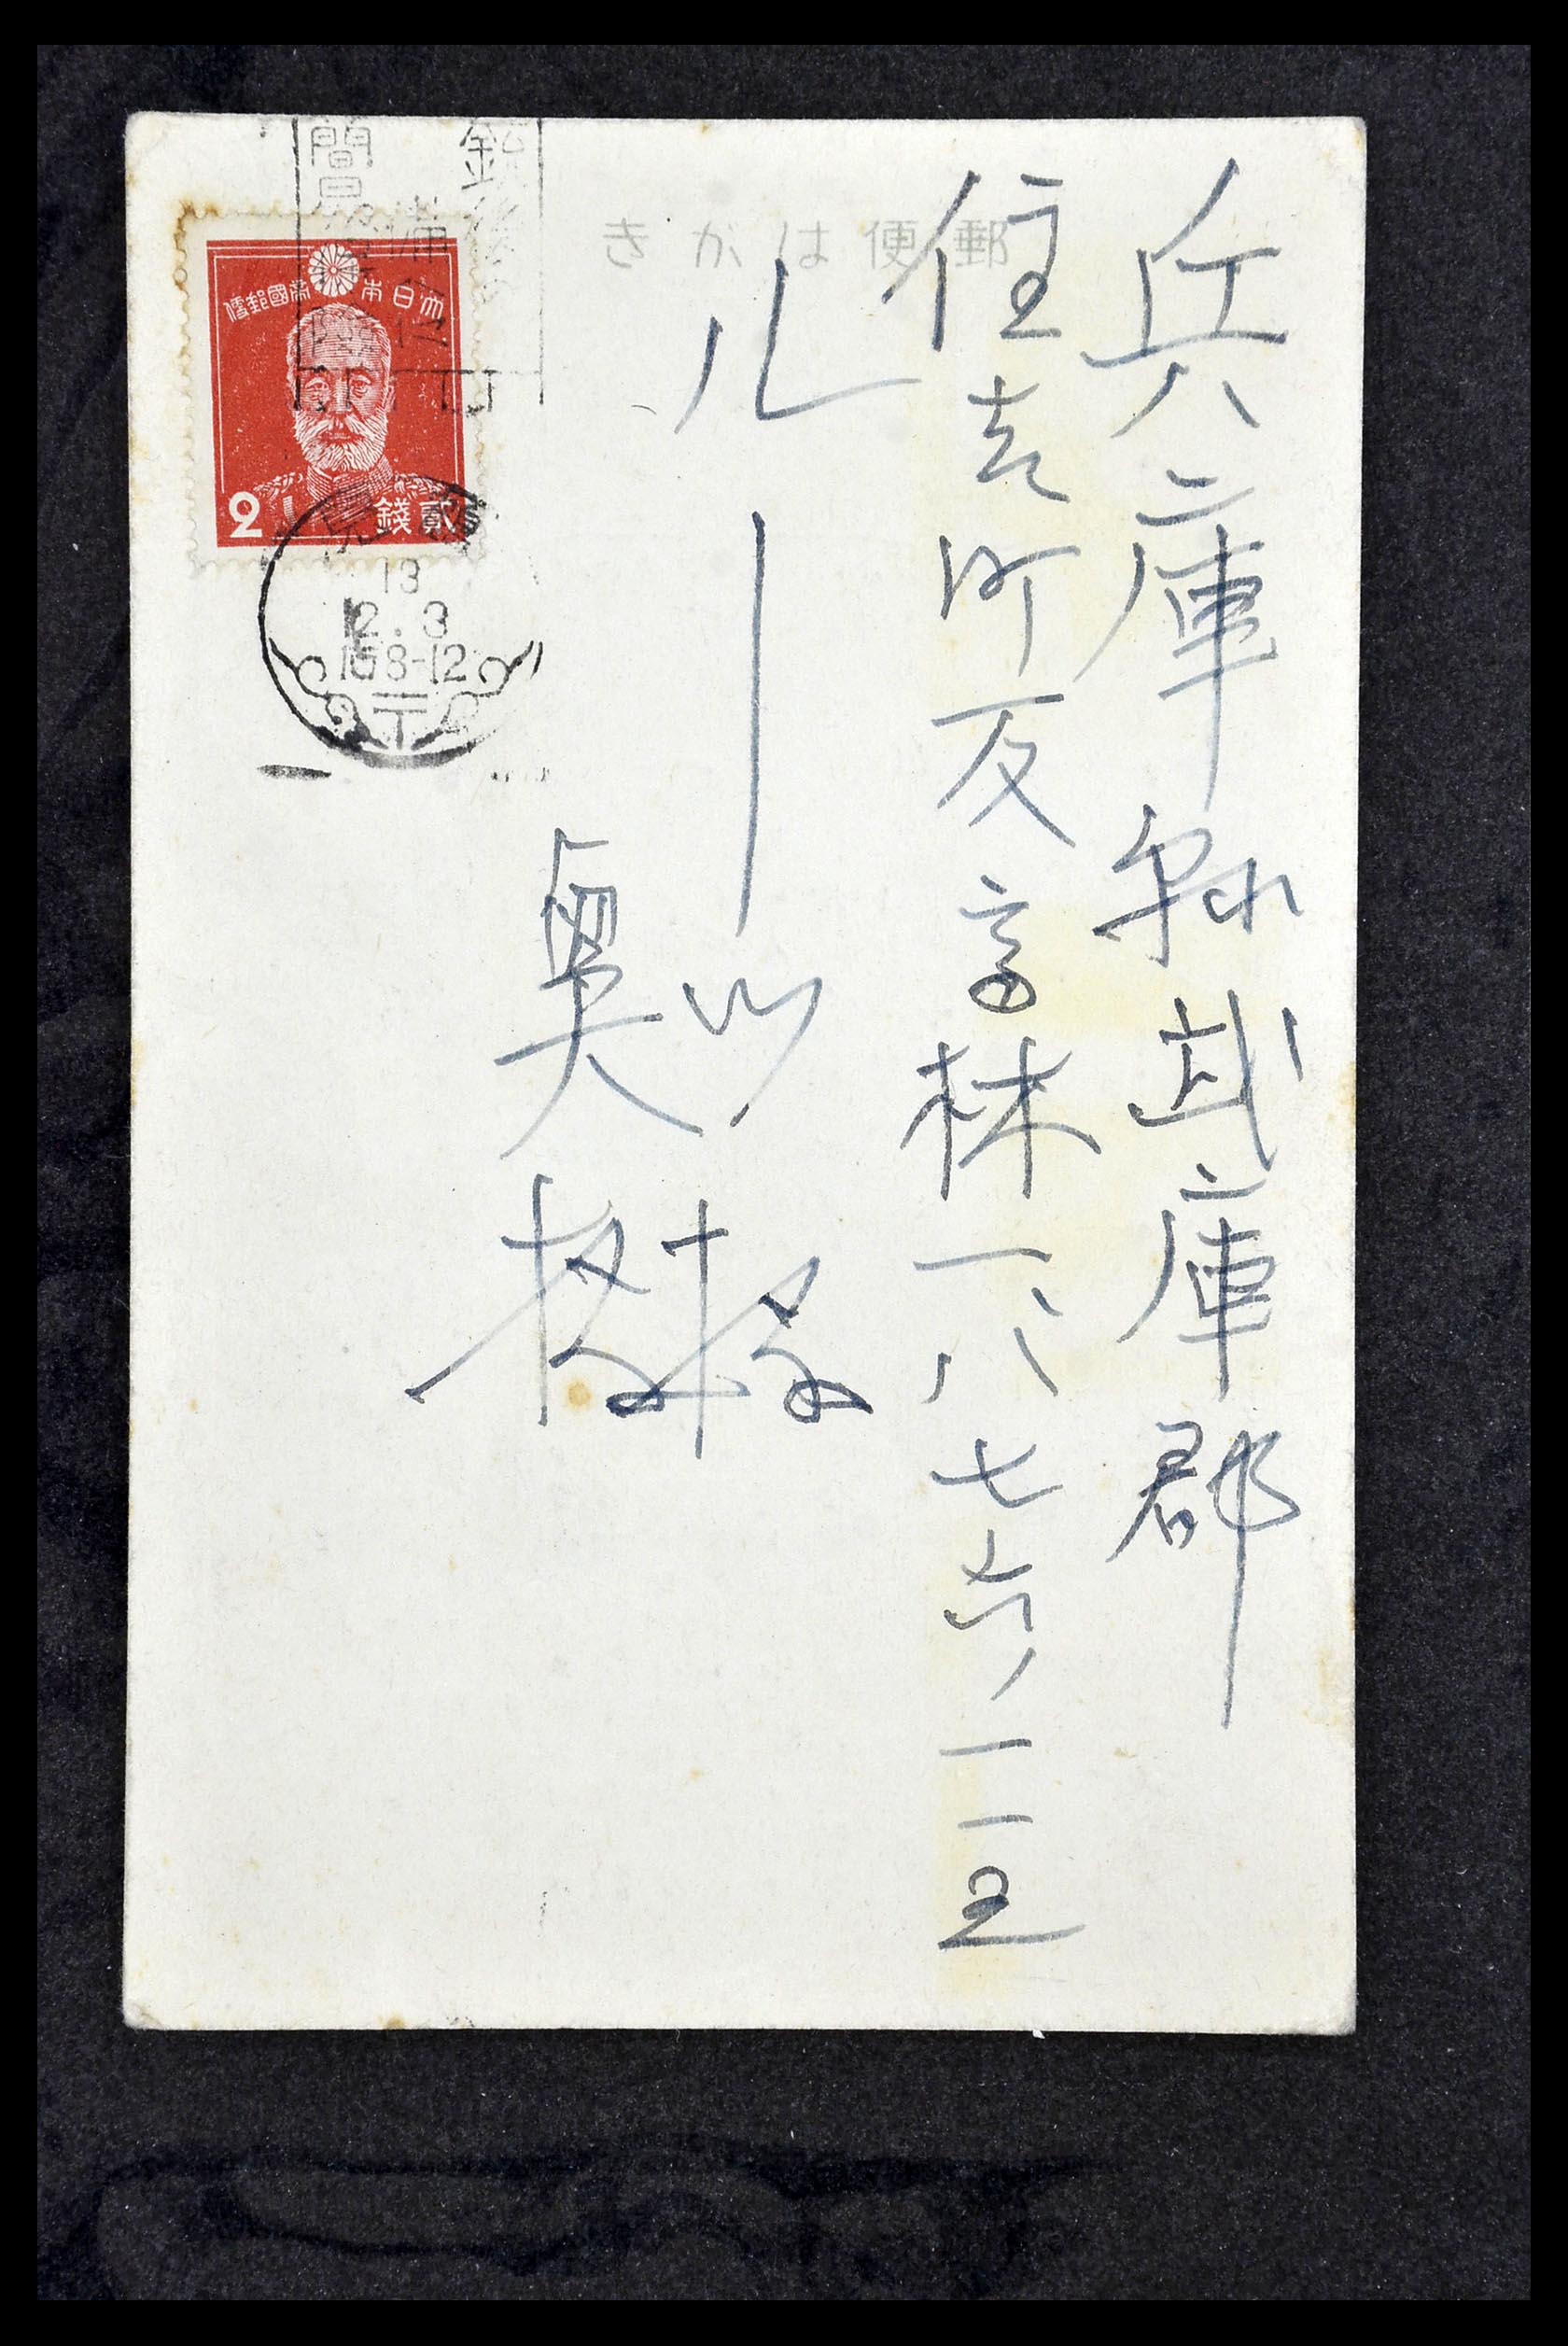 郵便はがき
大日本帝國郵便
2
貳錢
13
12.3
8-12
兵庫縣武庫郡
住吉町反高林一八七六ノ一一五
ルーシ様
奥様